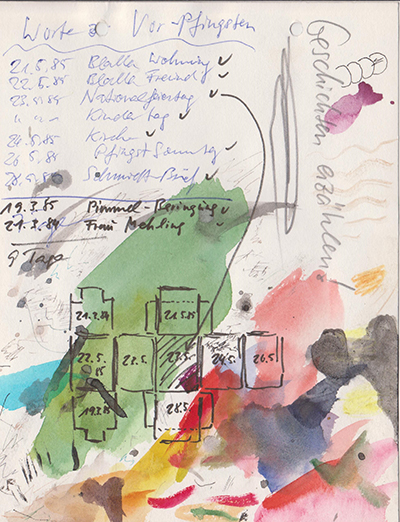 Worte Vor-Pfingsten
21.5.85 Blalla Wohnung
22.5.85 Blalla Freund
23.5.85 Nationalfeiertag
" " " Kinder tag
24.5.85 Kirche
26.5.85 Pfingst Sonntag
28.5.85 Schmidt-Brief
19.3.85 Pimmel-
21.3.84 Frau Mehling
9 Tage
Geschichten erzählen!
21.3.84 21.5.85
22.5.85 23.5. 23.5. 24.5. 26.5.
19.3.85 28.5.